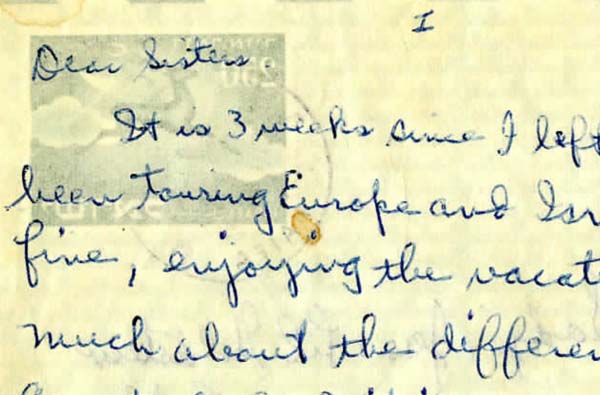 I
Dear Sisters
It is 3 weeks since I left
been touring Europe and Isr
fine, enjoying the vacat
much about the differen